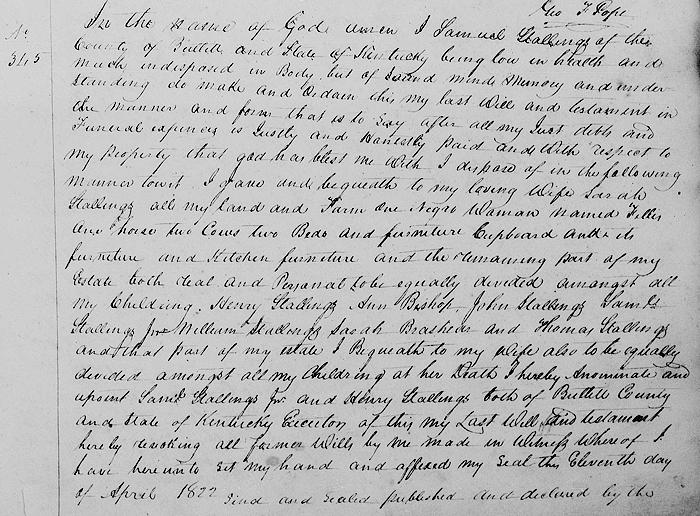 Geo F Pope
No
345
In the name of God amen I Samuel Stallings of the
County of Bullitt and State of Kentucky being low in health and
much indisposed in Body but of Sound mind & Memory and under
standing do make and Ordain this my last Will and testament in
the manner and form that is to Say after all my Just debts and
Funeral expences is Justly and Honestly paid and With respect to
my Property that god has blest me With I dispose of in the following
manner towit. I give and bequeath to my loving Wife Sarah
Stallings all my land and Farm One Negro Woman named Filler
One horse two Cows two Beds and furniture Cupboard and its
furniture and Kitchen furniture and the Remaining part of my
Estate both Real and Personal to be equally divided amongst all
my Children. Henry Stallings Ann Bishop John Stallings Saml
Stallings Jr William Stallings Sarah Brashear and Thomas Stallings
and that part of my estate I Bequeath to my Wife also to be equally
divided amongst all my Children at her Death I hereby Anominate and
apoint Saml Stallings Jr and Henry Stallings both of Bullitt County
and State of Kentucky Executors of this my Last Will and testament
hereby revoking all former Wills by me made in Witness Where of I
have here unto Set my hand and affixed my Seal this Eleventh day
of April 1822 Sind and Sealed published and declared by the